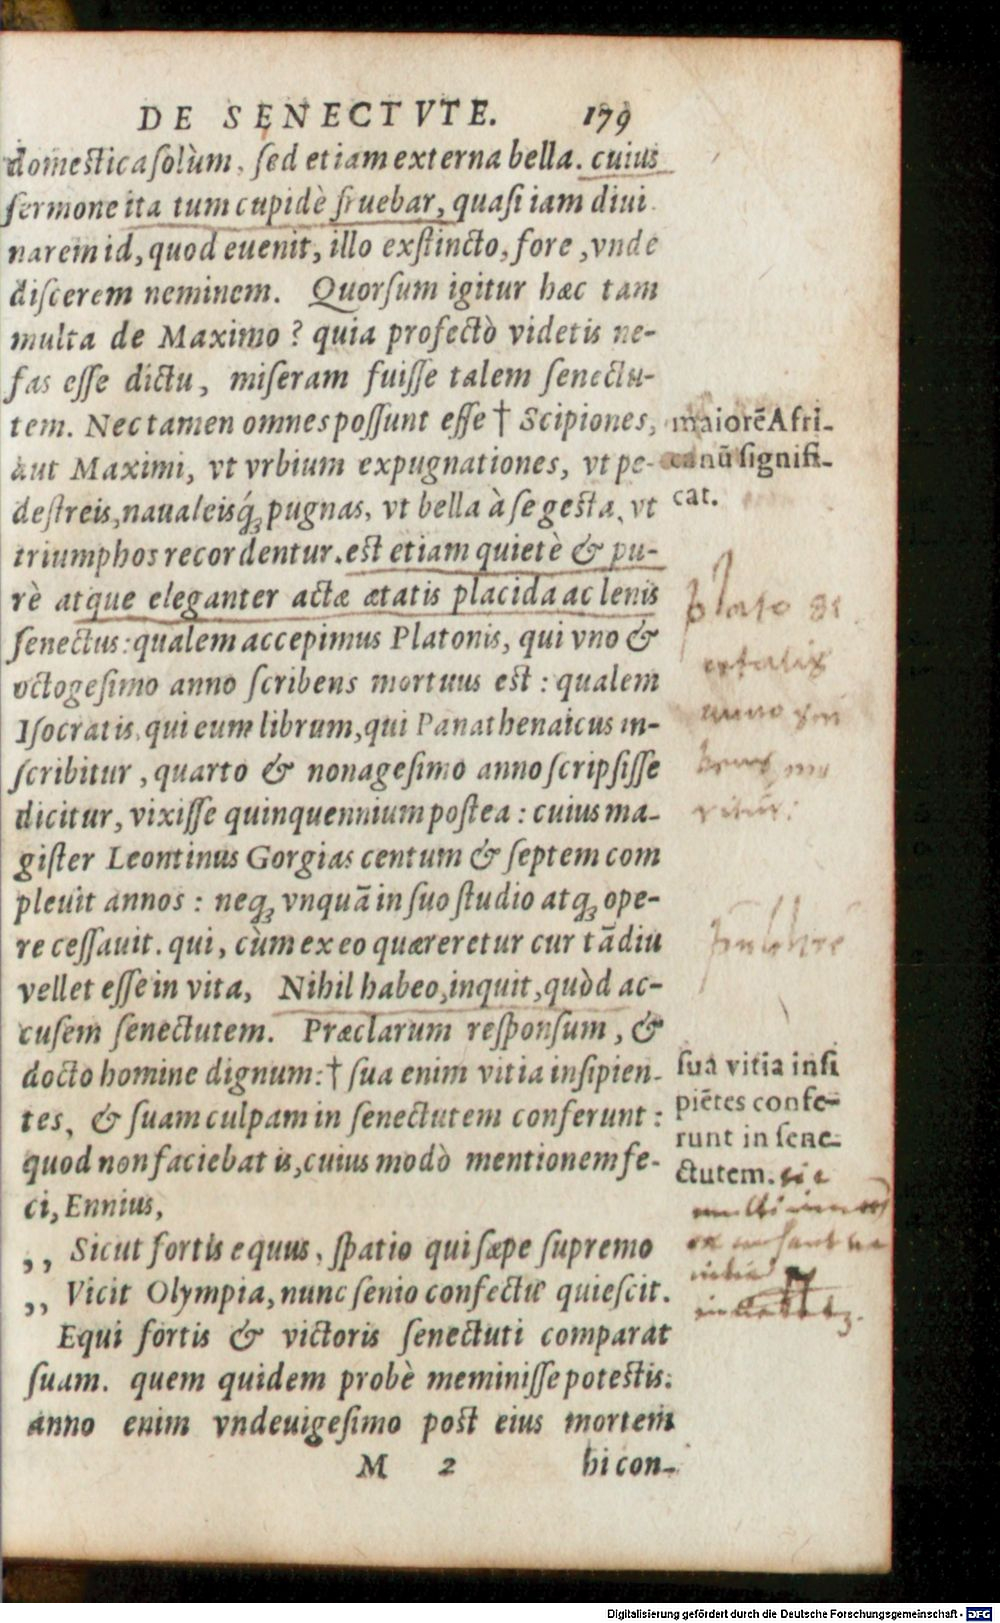 DE SENECTVTE. 179
domestica solùm, sed etiam externa bella. cuius
sermone ita tum cupidè fruebar, quasi iam diui
narem id, quod euenit, illo exstincto, fore, vnde
discerem neminem. Quorsum igitur hæc tam
multa de Maximo? quia profectò videtis ne-
fas esse dictu, miseram fuisse talem senectu-
tem. Nec tamen omnes possunt esse † Scipiones,
aut Maximi, vt vrbium expugnationes, vt pe-
destreis, naualeisq́ꝫ pugnas, vt bella à se gesta, vt
triumphos recordentur. est etiam quietè & pu-
rè atque eleganter actæ ætatis placida ac lenis
senectus: qualem accepimus Platonis, qui vno &
octogesimo anno scribens mortuus est: qualem
Isocratis, qui eum librum, qui Panathenaicus in-
scribitur, quarto & nonagesimo anno scripsisse
dicitur, vixisse quinquennium postea: cuius ma-
gister Leontinus Gorgias centum & septem com
pleuit annos: neqꝫ vnquã in suo studio atqꝫ ope-
re cessauit. qui, cùm ex eo quæreretur cur tãdiu
vellet esse in vita, Nihil habeo, inquit, quòd ac-
cusem senectutem. Præclarum responsum, &
docto homine dignum: † sua enim vitia insipien-
tes, & suam culpam in senectutem conferunt:
quod non faciebat is, cuius modò mentionem fe-
ci, Ennius,
,, Sicut fortis equus, spatio qui sæpe supremo
,, Vicit Olympia, nunc senio confectus quiescit.
Equi fortis & victoris senectuti comparat
suam. quem quidem probè meminisse potestis:
anno enim vndeuigesimo post eius mortem
M 2 hi con-
maiorẽ Afri-
canũ signifi-
cat.
plato
anno
sua vitia insi
piẽtes confe-
runt in sene-
ctutem. sic
Digitalisierung gefördert durch die Deutsche Forschungsgemeinschaft - DFG